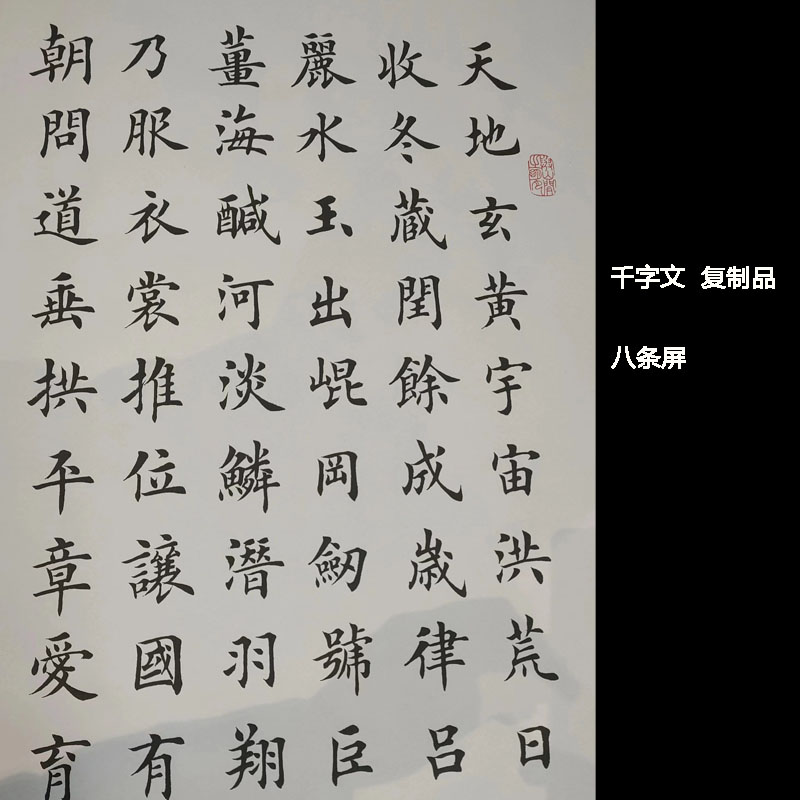 天地玄黄宇宙洪荒日
收冬蔵閏餘成歲律吕
麗水玉出崐岡劒號巨
薑海鹹河淡鱗潛羽翔
乃服衣裳推位讓國有
朝問道垂拱平章愛育
千字文 复制品
八条屏